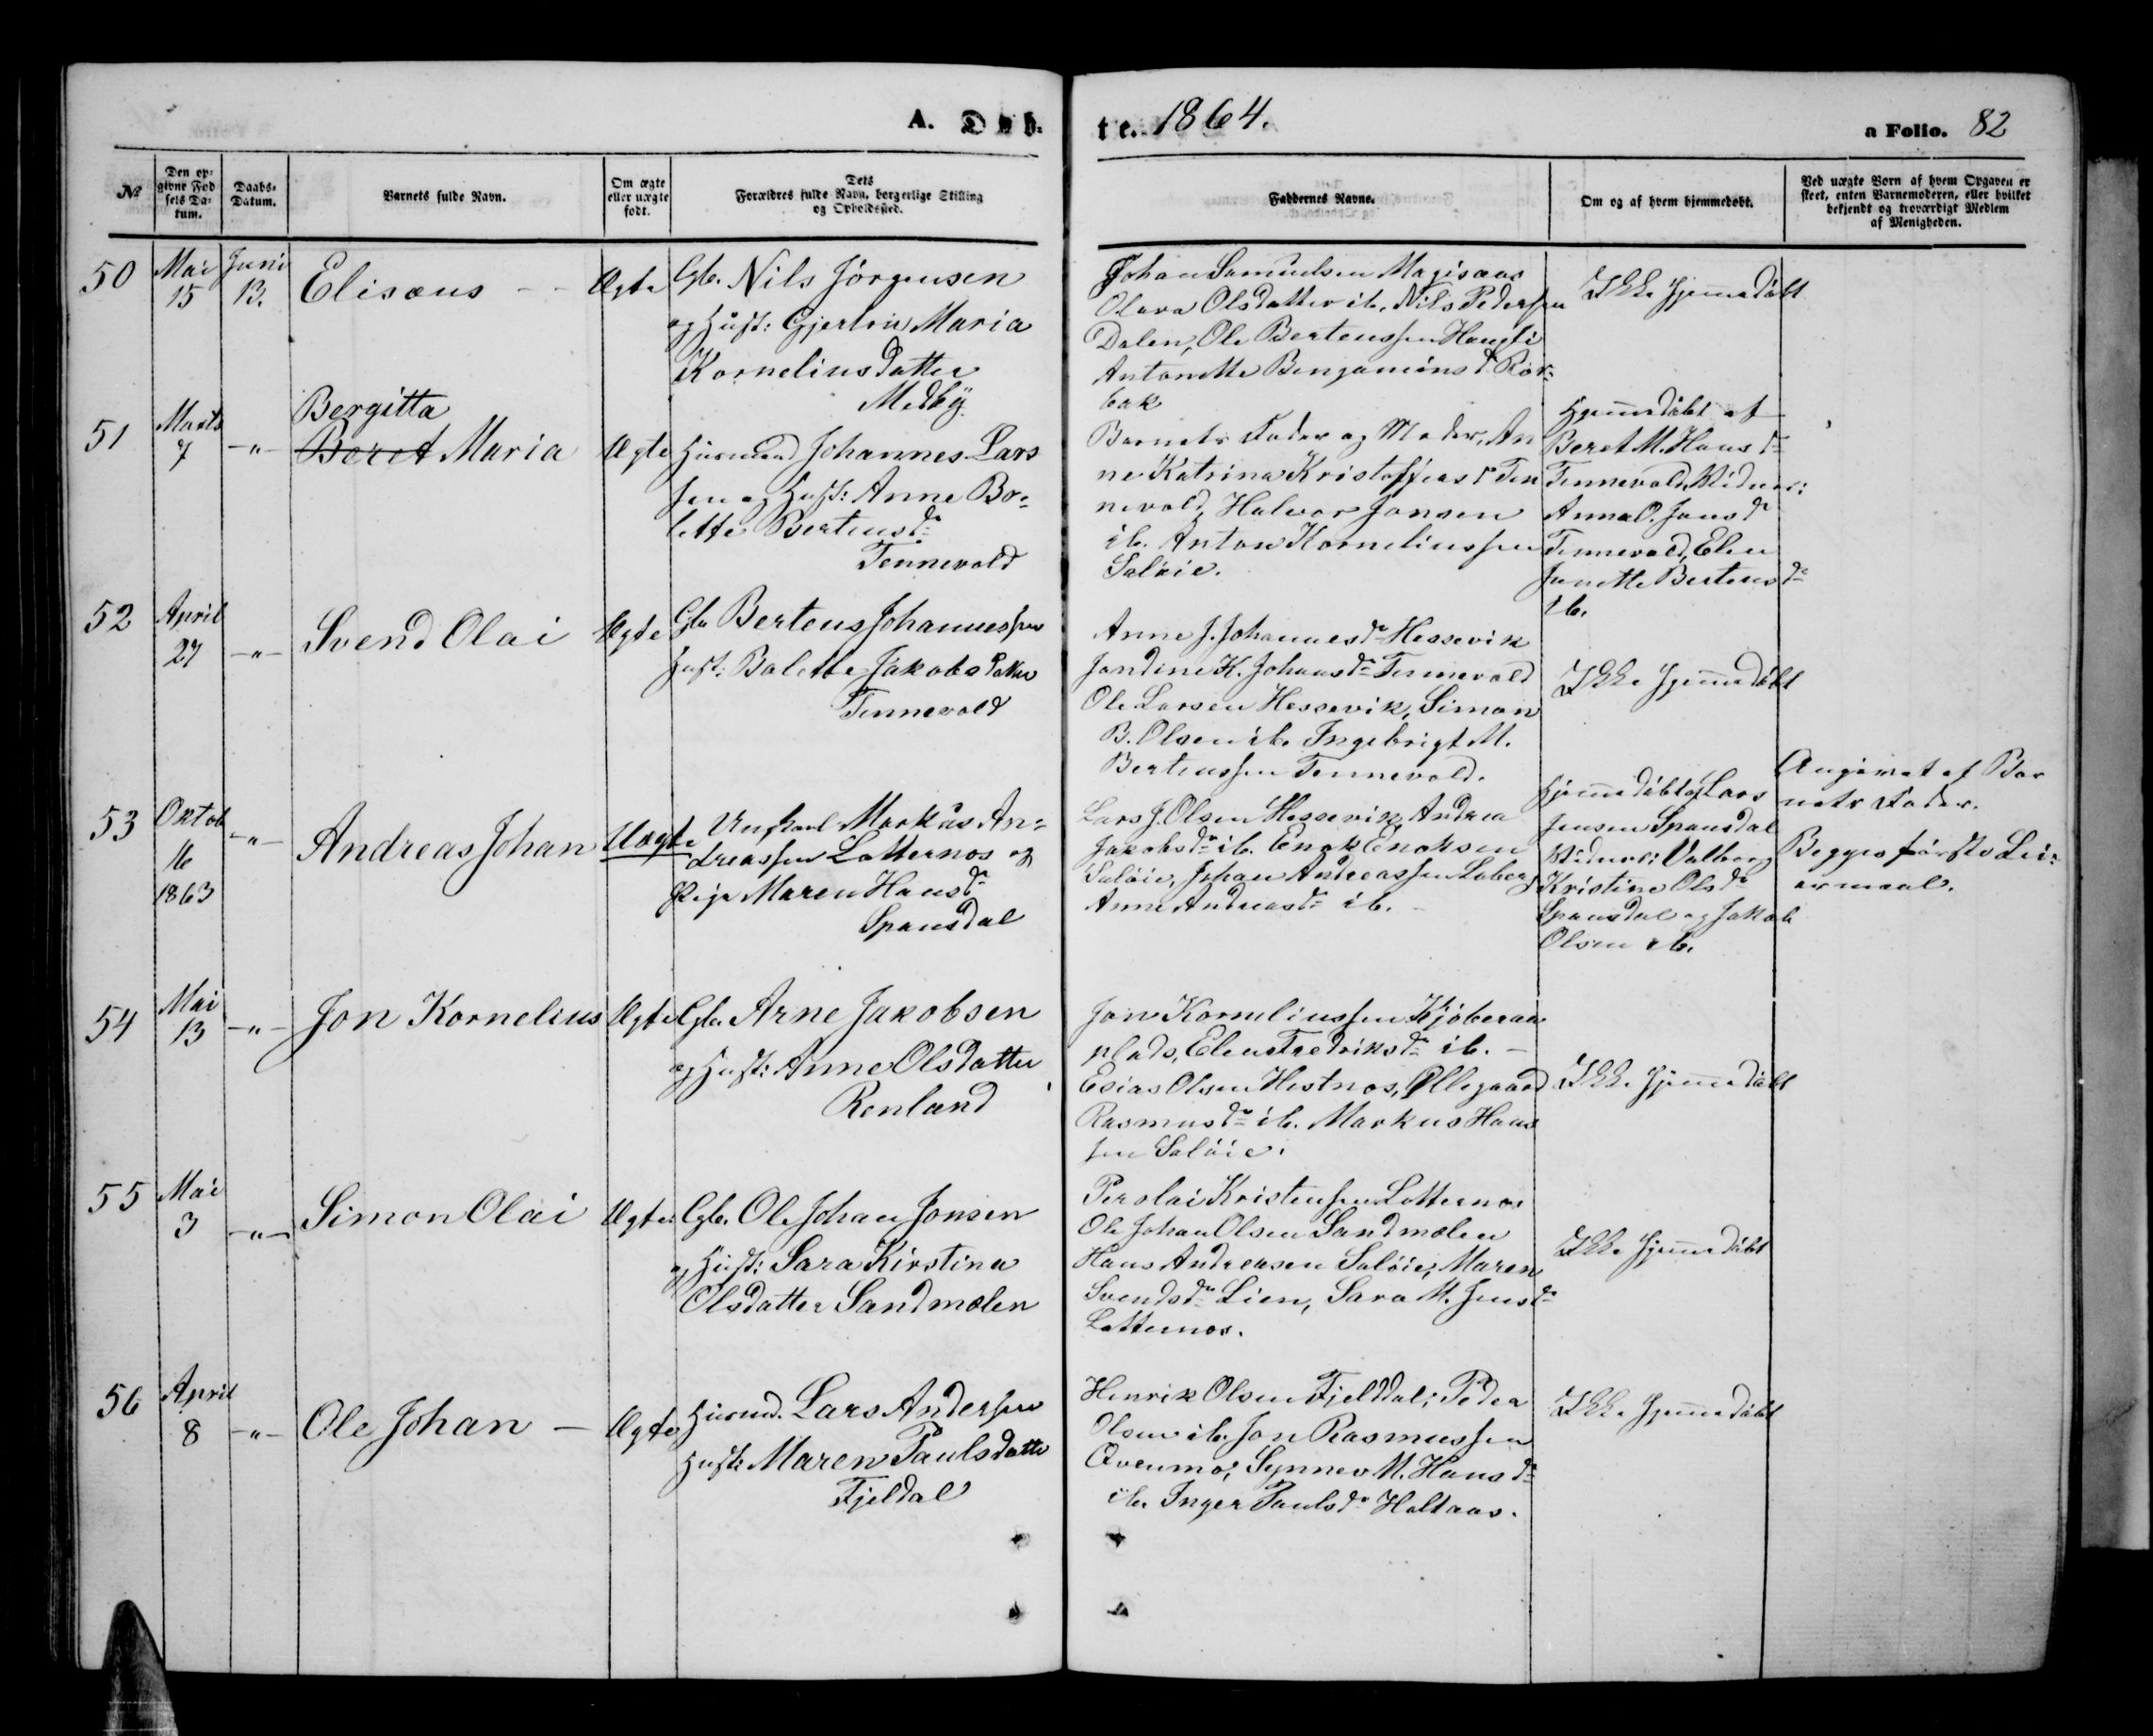 A. Døb-
te. 1864.
a Folio. 82
No
Den op-
givne Fød
sels Da-
tum.
Daabs-
Datum.
Barnets fulde Navn.
Om ægte
eller uægte
født.
Dets
Forældres fulde Navn, borgerlige Stilling
og Opholdssted.
Faddernes Navne.
Om og af hvem hjemmedøbt.
Ved uægte Børn af hvem Opgaven er
skeet, enten Barnemoderen, eller hvilket
bekjendt og troværdigt Medlem
af Menigheden.
50
Mai
15
Juni
13.
Elisæus
Ægte
Gb. Nils Jörgensen
og Hust: Gjertin Maria
Kornelius Datter
Medby
Johan Samuelsen Magisaas
Olava Olsdatter ib. Nils Pederssen
Dalen, Ole Bertenssen Haugli
Antonette Benjamins d. Rör-
bak
Ikke hjemmedöbt
51
Marts
7
-"-
Bergitta
Beret Maria
Ægte
Husmand Johannes Lars
sen og Hust: Anne Bo-
lette Bertens dr
Tennevold
Barnets Fader og Moder, An
ne Katrina Kristoffers dr Ten
nevold, Halvor Jonsen
ib. Anton Korneliussen
Salöie.
Hjemmedöbt af
Beret M. Hans dr
Tennevold, Vidner:
Anna O. Jons dr
Tennevold, Elen
Janette Bertens dr
ib.
52
April
27
-"-
Svend Olai
Ægte
Gb. Bertens Johannessen
Hust: Bolette Jakobs Datter
Tennevold
Anne J. Johannes dr Hessevik
Jondine K. Johans dr Tennevold
Ole Larsen Hessevik, Simon
B. Olsen ib. Ingebrigt M.
Bertenssen Tennevold.
Ikke hjemmedöbt
53
Oktob
16
1863
-"-
Andreas Johan
Uægte
Ungkarl Markus An-
dreassen Lotternes og
Pige Maren Hans dr
Spansdal
Lars J. Olsen Hessevik, Andrea
Jakobs dr ib. Enok Enoksen
Salöie, Johan Andreassen Laberg
Anne Andreas dr ib.
Hjemmedöbt af Lars
Jensen Spansdal
Vidner: Valborg
Kristine Ols dr
Spansdal og Jakob
Olsen ib.
Angivet af Bar
nets Fader.
Begges förste Lei-
ermaal.
54
Mai
13
-"-
Jon Kornelius
Ægte
Gb. Arne Jakobsen
og Hust: Anne Olsdatter
Renland
Jon Korneliussen Kjöberaa
plads, Elen Fredriks dr ib. -
Esias Olsen Hestnes, Ollegaard
Rasmus dr ib. Markus Hans
sen Salöie.
Ikke hjemmedöbt
55
Mai
3
-"-
Simon Olai
Ægte
Gb. Ole Johan Jonsen
og Hust: Sara Kirstina
Olsdatter Sandmælen
Perolai Kristenssen Lotternes
Ole Johan Olsen Sandmælen
Hans Andreasen Salöie, Maren
Svends dr Lien, Sara M. Jens dr
Lotternes.
Ikke hjemmedöbt
56
April
8
-"-
Ole Johan -
Ægte
Husmd. Lars Anderssen
Hust: Maren Paulsdatter
Fjeldal
Henrik Olsen Fjelddal, Peder
Olsen ib. Jon Rasmussen
Qvenmo, Synnev M. Hans dr
ib. Inger Pauls dr Holtaas.
Ikke hjemmedöbt